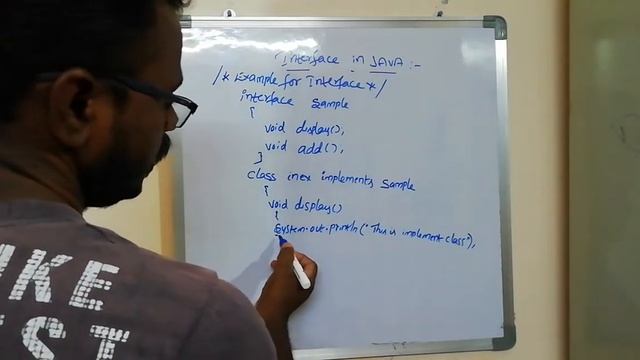 Interface in JAVA :-
/* Example for Interface */
interface Sample
{
void display(),
void add(),
}
class inex implements Sample
{
void display()
{
System.out.println("This is implement class"),
IKE
EST